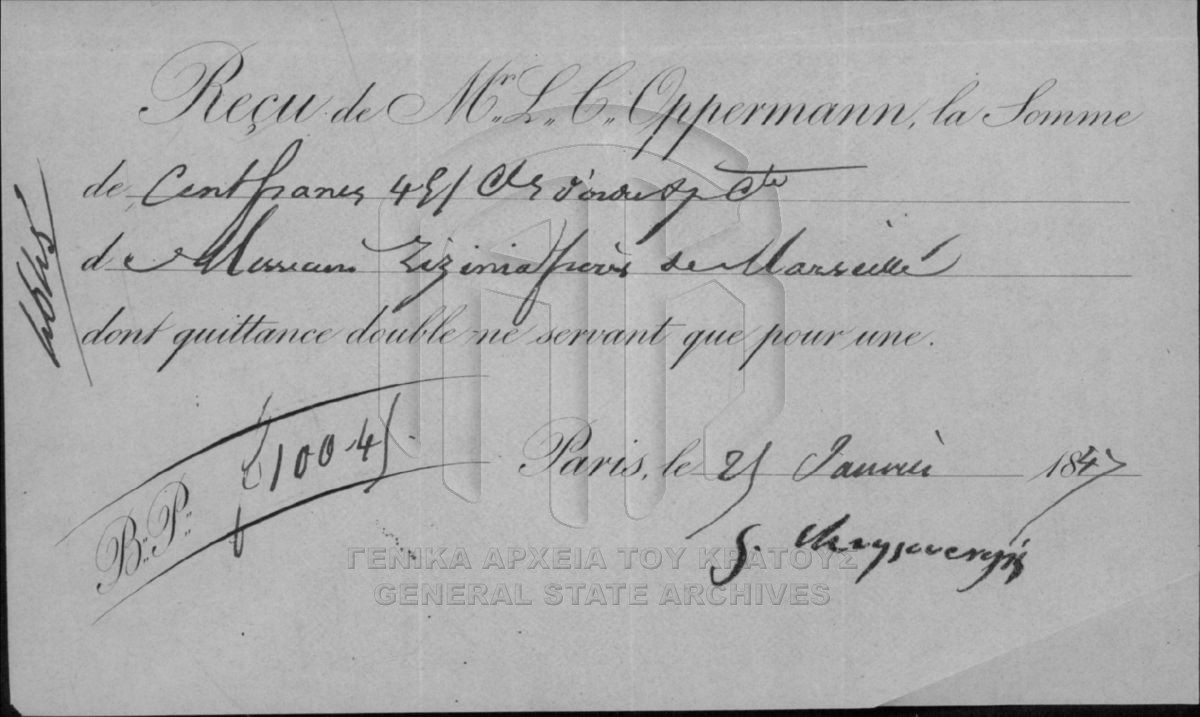 Reçu de Mr. L. C. Oppermann, la Somme
de Cent francs 45/ Cs d'ordre & p Cte
de Messieurs Zizinia frères de Marseille
dont quittance double ne servant que pour une.
B. P. f 100.45
Paris, le 25 Janvier 1847
ΓΕΝΙΚΑ ΑΡΧΕΙΑ ΤΟΥ ΚΡΑΤΟΥΣ
GENERAL STATE ARCHIVES